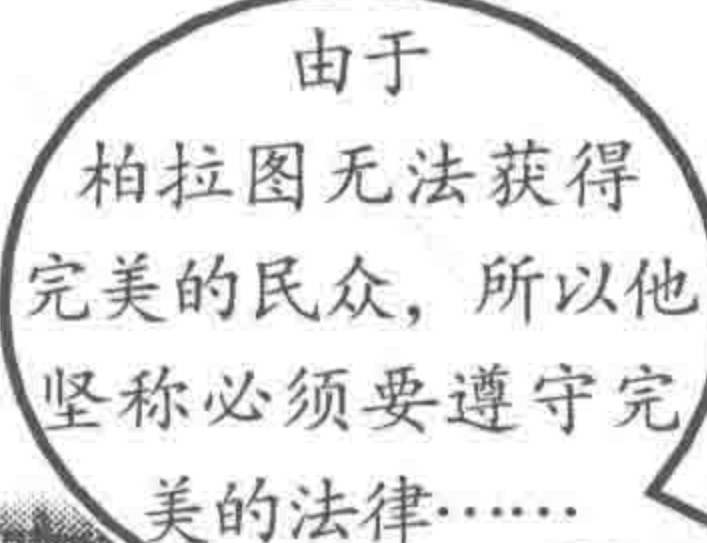 由于
柏拉图无法获得
完美的民众，所以他
坚称必须要遵守完
美的法律……